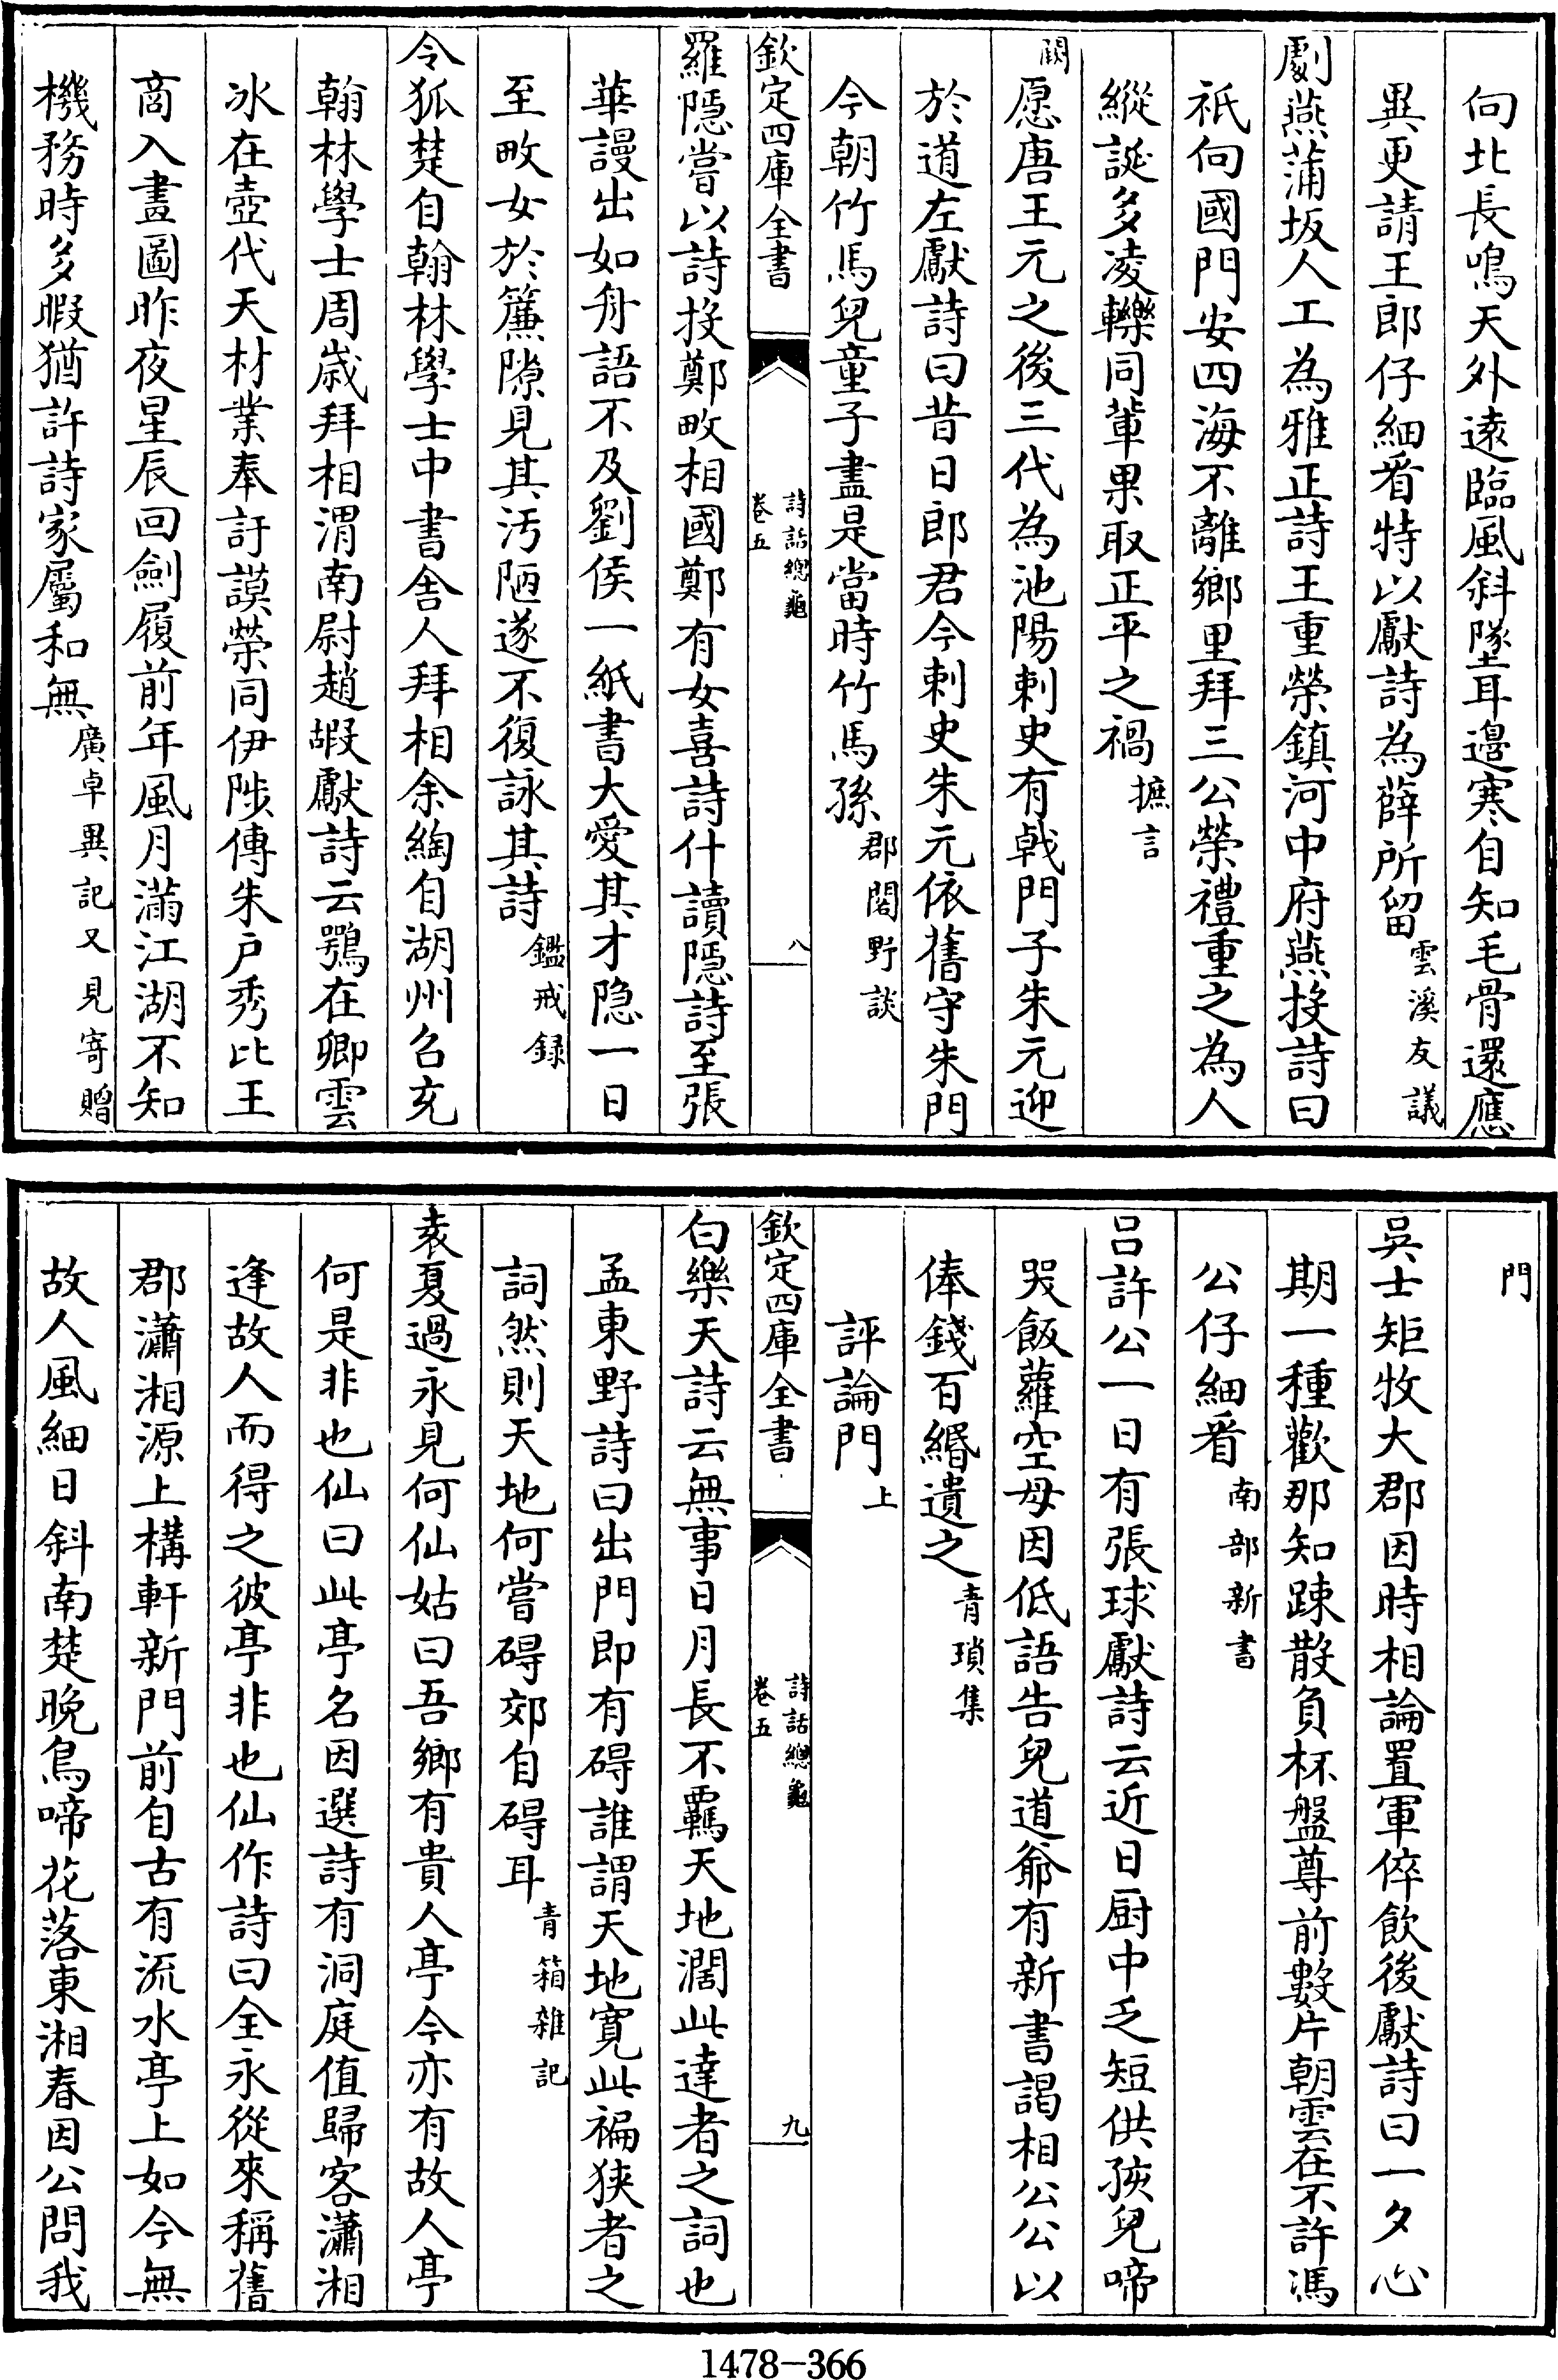 向北長鳴天外遠臨風斜墜耳邉寒自知毛骨還應
異更請王郎仔細看特以獻詩為薛所留雲溪友議
劇燕蒲坂人工為雅正詩王重榮鎮河中府燕投詩曰
祇向國門安四海不離鄉里拜三公榮禮重之為人
縱誕多凌轢同輩果取正平之禍摭言
闕愿唐王元之後三代為池陽刺史有戟門子朱元迎
於道左獻詩曰昔日郎君今刺史朱元依舊守朱門
今朝竹馬兒童子盡是當時竹馬孫郡閣野談
欽定四庫全書
詩話總龜
卷五
八
羅隱嘗以詩投鄭畋相國鄭有女喜詩什讀隱詩至張
華謾出如舟語不及劉侯一紙書大愛其才隱一日
至畋女於簾隙見其汚陋遂不復詠其詩鑑戒録
令狐楚自翰林學士中書舍人拜相余綯自湖州召充
翰林學士周歲拜相渭南尉趙嘏獻詩云鶚在卿雲
冰在壺代天材業奉訏謨榮同伊陟傳朱户秀比王
商入畫圖昨夜星辰回劍履前年風月滿江湖不知
機務時多暇猶許詩家屬和無廣卓異記又見寄贈
門
吳士矩牧大郡因時相論置軍倅飲後獻詩曰一夕心
期一種歡那知踈散負杯盤尊前數片朝雲在不許馮
公仔細看南部新書
吕許公一日有張球獻詩云近日厨中乏短供孩兒啼
哭飯蘿空母因低語告兒道爺有新書謁相公公以
俸錢百緡遺之青瑣集
評論門上
欽定四庫全書
詩話總龜
卷五
九
白樂天詩云無事日月長不羈天地濶此達者之詞也
孟東野詩曰出門即有碍誰謂天地寛此褊狹者之
詞然則天地何嘗碍郊自碍耳青箱雜記
袁夏過永見何仙姑曰吾鄉有貴人亭今亦有故人亭
何是非也仙曰此亭名因選詩有洞庭值歸客瀟湘
逢故人而得之彼亭非也仙作詩曰全永從來稱舊
郡瀟湘源上構軒新門前自古有流水亭上如今無
故人風細日斜南楚晚鳥啼花落東湘春因公問我
1478-366